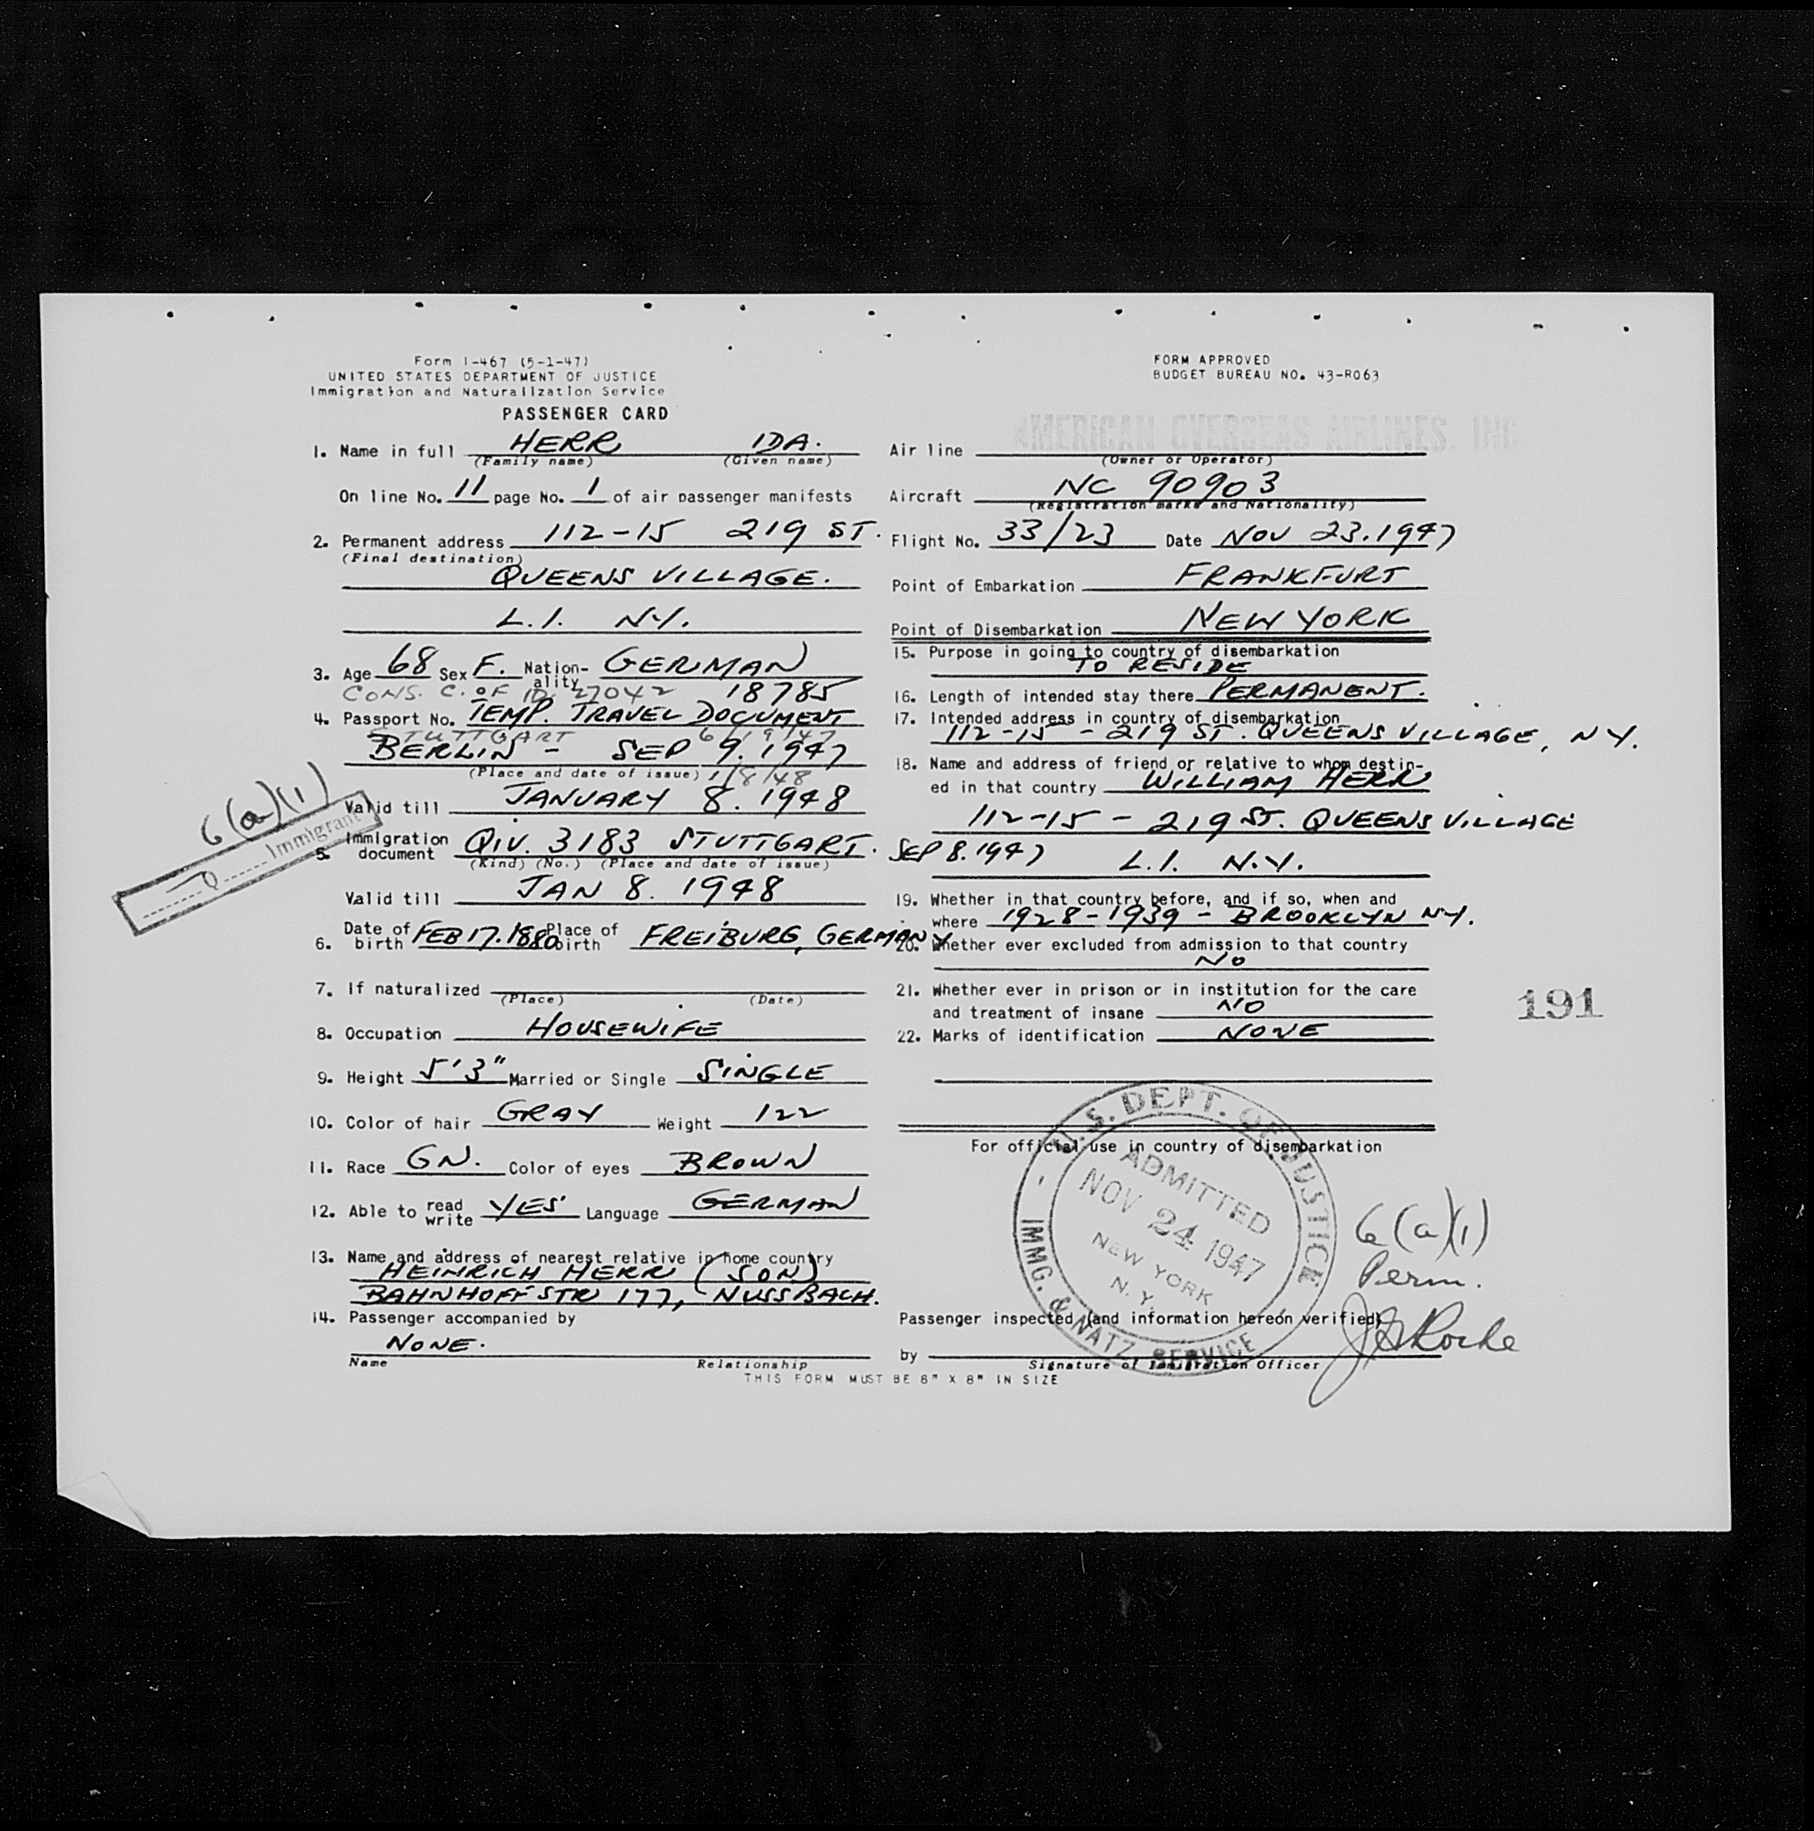 Form I-467 (5-1-47)
UNITED STATES DEPARTMENT OF JUSTICE
Immigration and Naturalization Service
PASSENGER CARD
FORM APPROVED
BUDGET BUREAU NO. 43-R063
1. Name in full HERR IDA.
(Family name) (Given name)
On line No. 11 page No. 1 of air passenger manifests
2. Permanent address 112-15 219 ST.
(Final destination)
QUEENS VILLAGE.
L.I. N.Y.
3. Age 68 Sex F. Nationality GERMAN
CONS. C. OF ID. 27042 18785
4. Passport No. TEMP. TRAVEL DOCUMENT
STUTTGART 6/19/47
BERLIN - SEP 9. 1947
(Place and date of issue) 1/8/48
Valid till JANUARY 8. 1948
6(a)(1)
Immigrant
5. Immigration document QIV. 3183 STUTTGART. SEP 8. 1947
(Kind) (No.) (Place and date of issue)
Valid till JAN 8. 1948
6. Date of birth FEB 17. 1880 Place of birth FREIBURG, GERMANY
7. If naturalized
(Place) (Date)
8. Occupation HOUSEWIFE
9. Height 5'3" Married or Single SINGLE
10. Color of hair GRAY Weight 122
11. Race GN. Color of eyes BROWN
12. Able to read write YES Language GERMAN
13. Name and address of nearest relative in home country
HEINRICH HERR (SON)
BAHNHOFFSTR 177, NUSSBACH.
14. Passenger accompanied by
NONE.
Name Relationship
AMERICAN OVERSEAS AIRLINES, INC
Air line
(Owner or Operator)
Aircraft NC 90903
(Registration marks and Nationality)
Flight No. 33/23 Date NOV 23. 1947
Point of Embarkation FRANKFURT
Point of Disembarkation NEW YORK
15. Purpose in going to country of disembarkation
TO RESIDE
16. Length of intended stay there PERMANENT.
17. Intended address in country of disembarkation
112-15 - 219 ST. QUEENS VILLAGE, N.Y.
18. Name and address of friend or relative to whom destin-
ed in that country WILLIAM HERR
112-15 - 219 ST. QUEENS VILLAGE
L.I. N.Y.
19. Whether in that country before, and if so, when and
where 1928-1939 - BROOKLYN NY.
20. Whether ever excluded from admission to that country
NO
21. Whether ever in prison or in institution for the care
and treatment of insane NO
22. Marks of identification NONE
191
For official use in country of disembarkation
U.S. DEPT. OF JUSTICE
ADMITTED
NOV 24 1947
NEW YORK
N.Y.
IMMG. & NATZ. SERVICE
6(a)(1)
Perm.
Passenger inspected (and information hereon verified)
by
Signature of Immigration Officer
THIS FORM MUST BE 8" X 8" IN SIZE